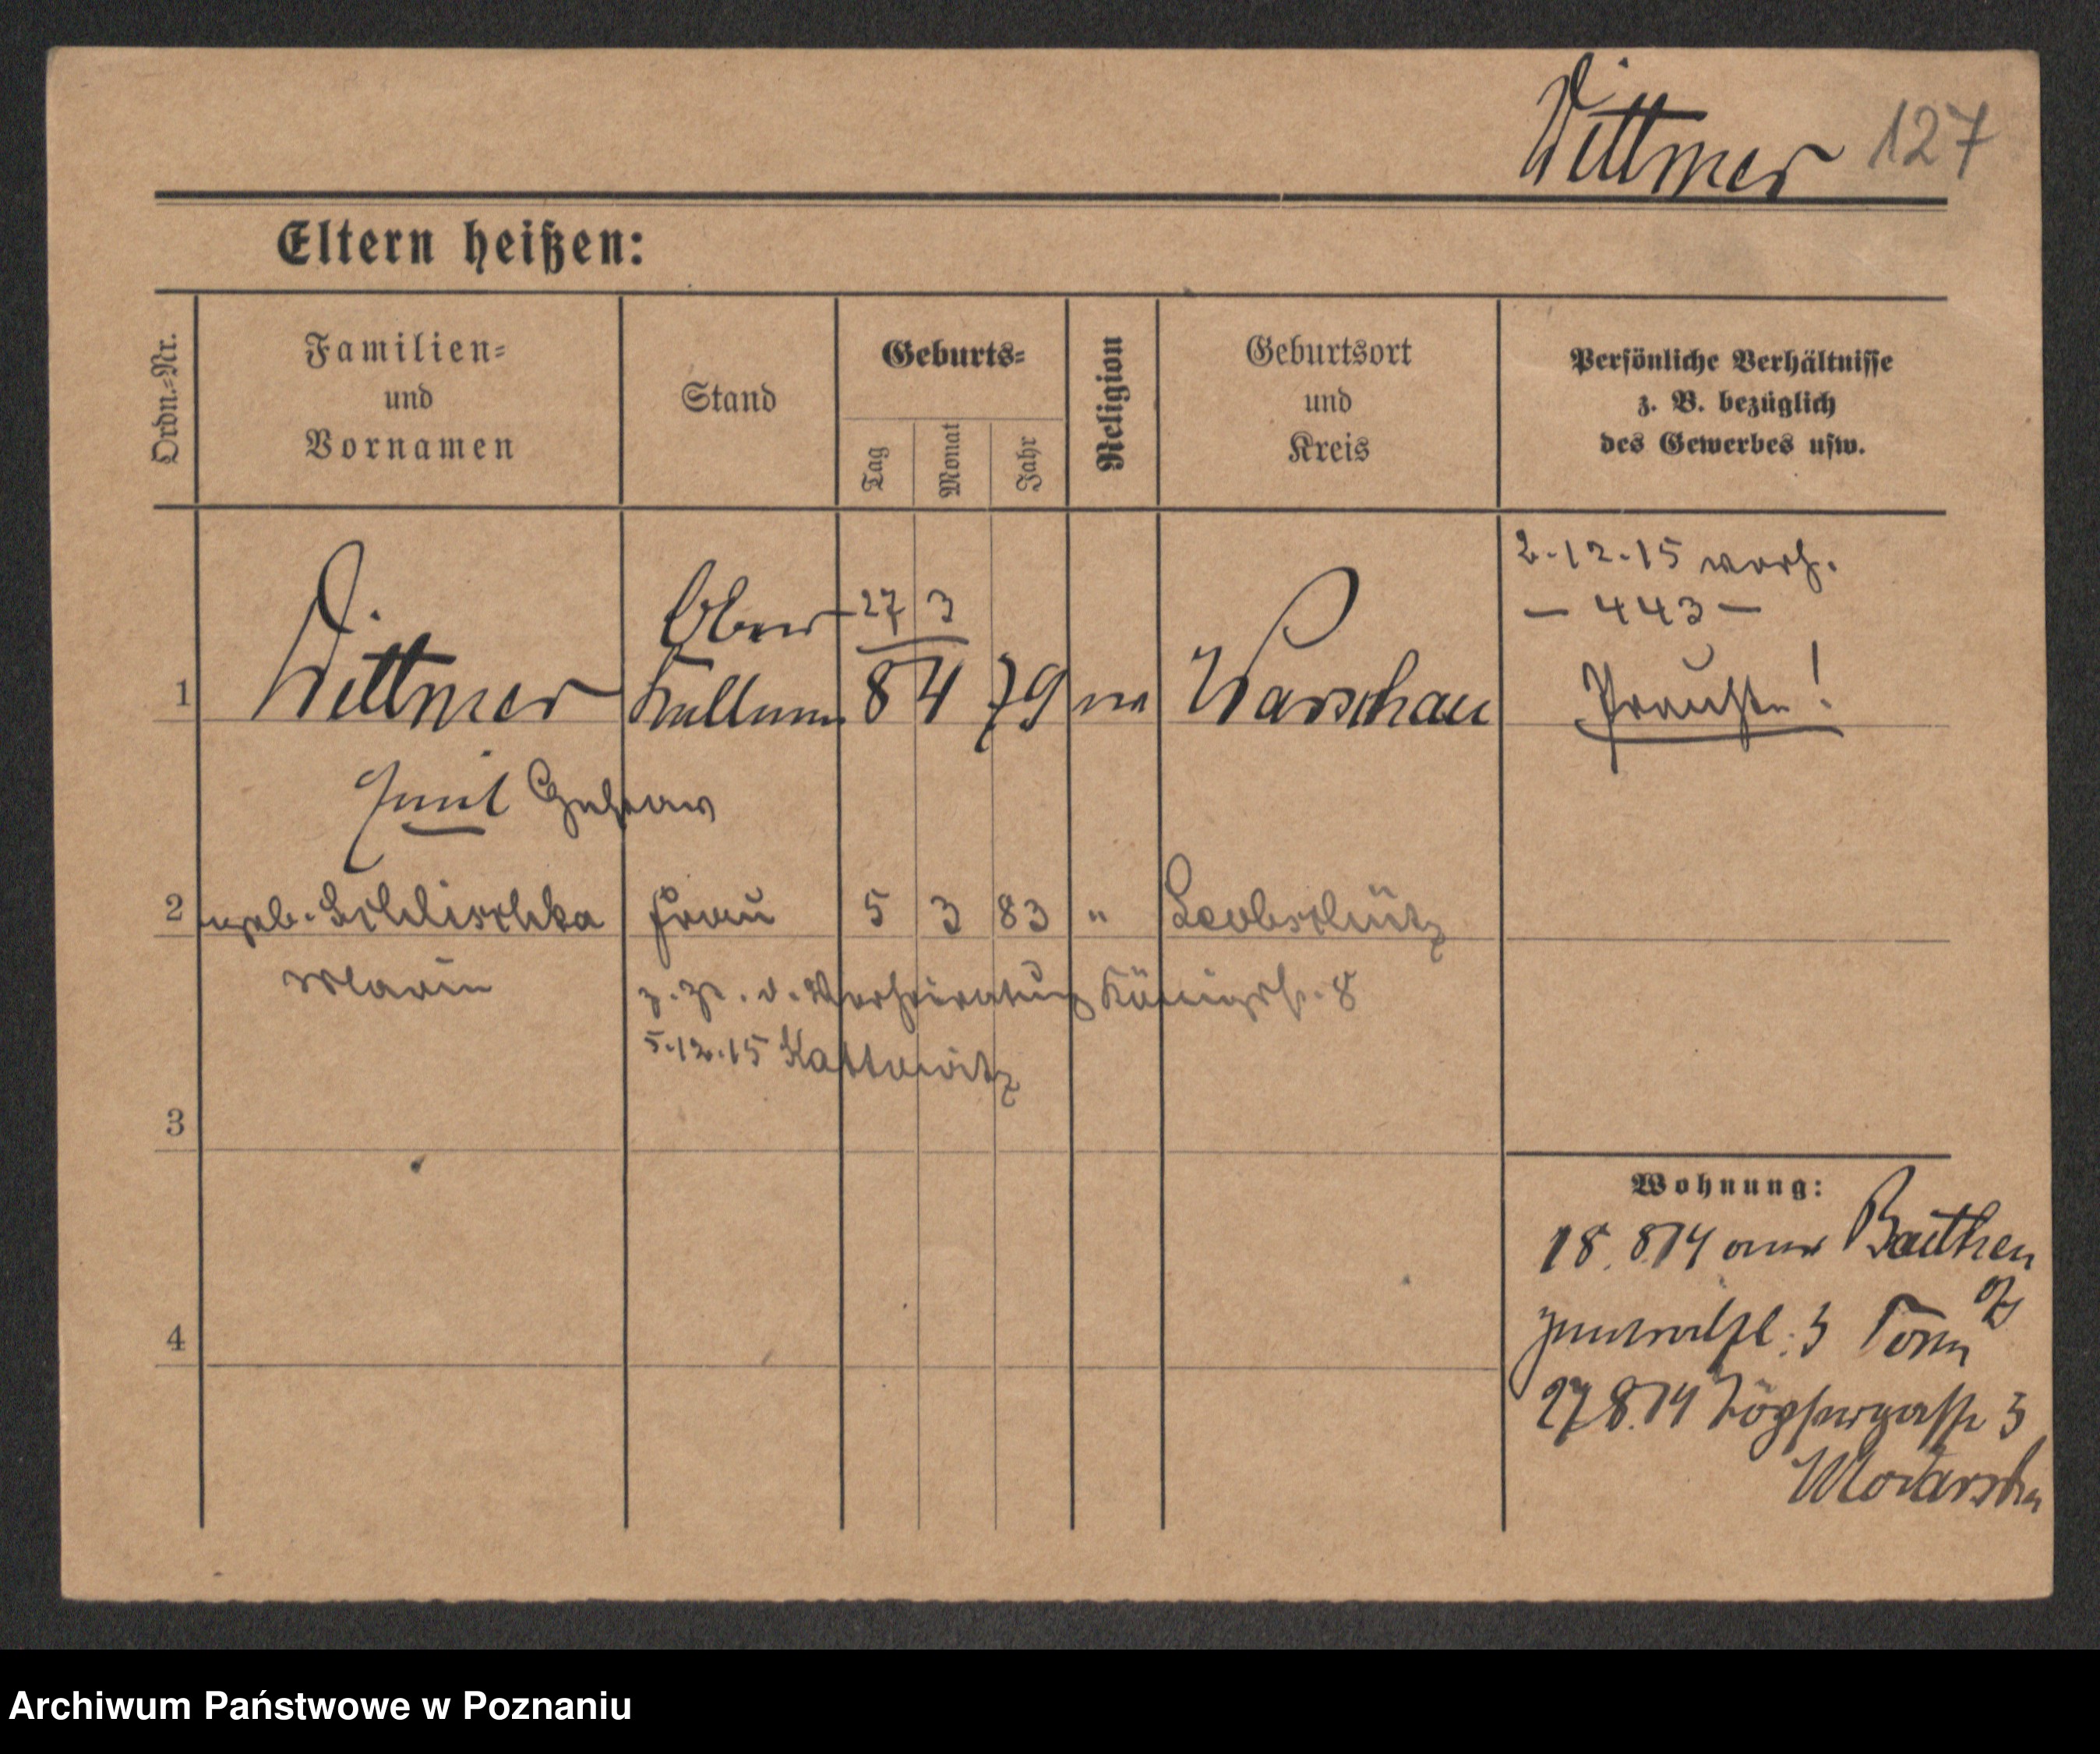 Dittmer 127
Eltern heißen:
Ordn.=Nr.
Familien=
und
Vornamen
Stand
Geburts=
Tag
Monat
Jahr
Religion
Geburtsort
und
Kreis
Persönliche Verhältnisse
z. B. bezüglich
des Gewerbes usw.
2.12.15 verh.
— 443 —
Ober 27 3
1 Dittmer Kellner 8 4 79 Warschau
Emil Gustav
2 geb. Schlischka Frau 5 3 83 " Leobschütz
Marie
z. Zt. d. Verheiratung Königstr. 8
5.12.15 Kattowitz
3
Wohnung:
18.8.14 Beuthen
3
4
27.8.14 3